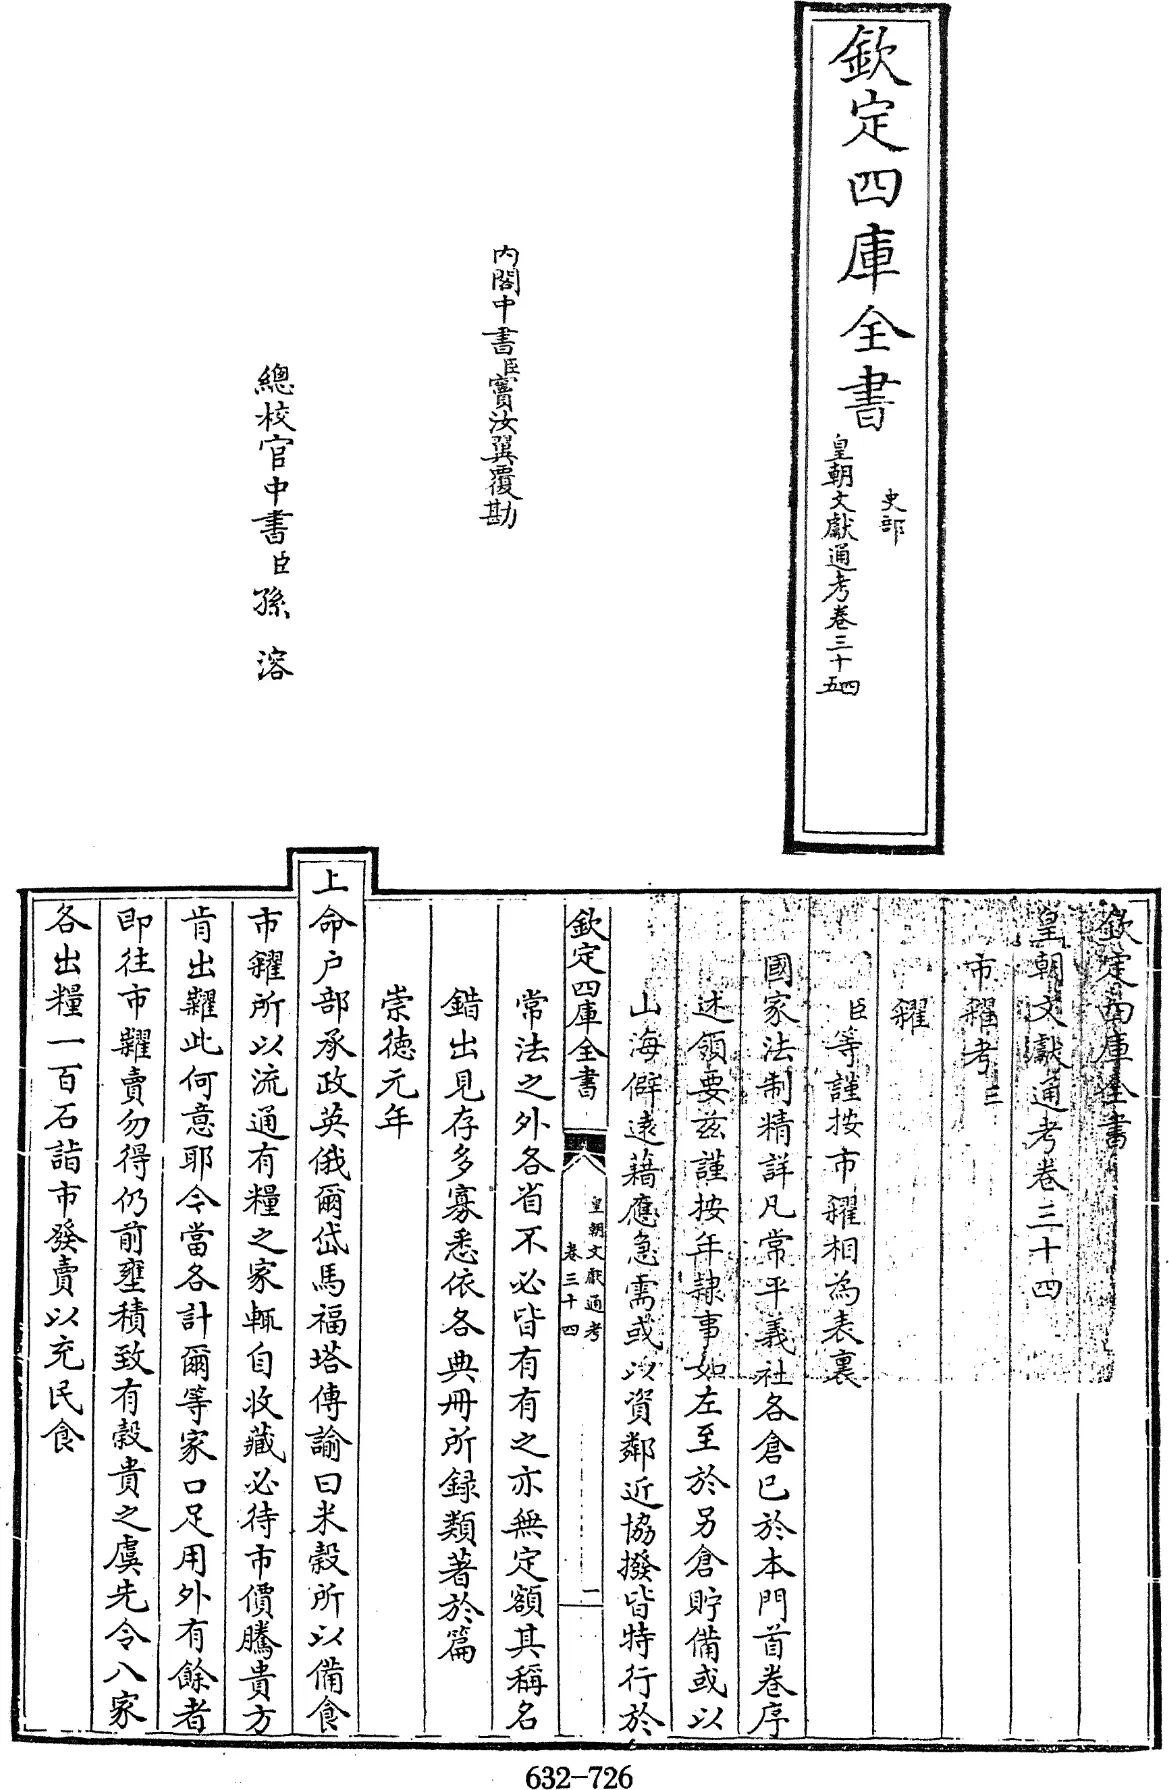 欽定四庫全書
史部
皇朝文獻通考卷三十四五
內閣中書臣竇汝翼覆勘
總校官中書臣孫溶
欽定四庫全書
皇朝文獻通考卷三十四
市糴考三
糴
臣等謹按市糴相為表裏
國家法制精詳凡常平義社各倉已於本門首卷序
述領要兹謹按年隸事如左至於另倉貯備或以
山海僻遠藉應急需或以資鄰近協撥皆特行於
欽定四庫全書
皇朝文獻通考
卷三十四
一
常法之外各省不必皆有有之亦無定額其稱名
錯出見存多寡悉依各典冊所録類著於篇
崇徳元年
上命户部承政英俄爾岱馬福塔傳諭曰米穀所以備食
市糴所以流通有糧之家輒自收藏必待市價騰貴方
肯出糶此何意耶今當各計爾等家口足用外有餘者
即往市糶賣勿得仍前壅積致有穀貴之虞先令八家
各出糧一百石詣市發賣以充民食
632-726